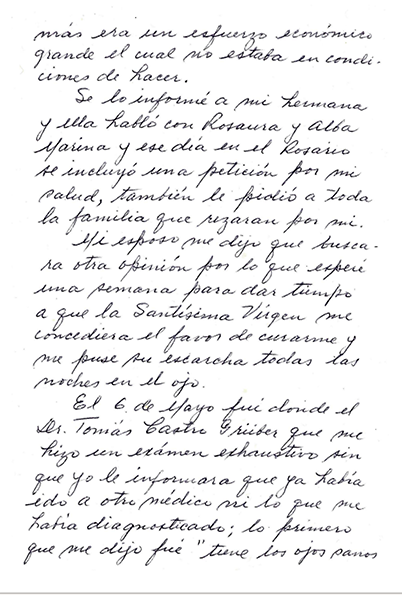 más era un esfuerzo económico
grande el cual no estaba en condi-
ciones de hacer.
Se lo informé a mi hermana
y ella habló con Rosaura y Alba
Marina y ese día en el Rosario
se incluyó una petición por mi
salud, también le pidió a toda
la familia que rezaran por mi.
Mi esposo me dijo que busca-
ra otra opinión por lo que esperé
una semana para dar tiempo
a que la Santísima Virgen me
concediera el favor de curarme y
me puse su escarcha todas las
noches en el ojo.
El 6 de Mayo fuí donde el
Dr. Tomás Castro Grüber que me
hizo un exámen exhaustivo sin
que yo le informara que ya había
ido a otro médico ni lo que me
había diagnosticado; lo primero
que me dijo fué "tiene los ojos sanos